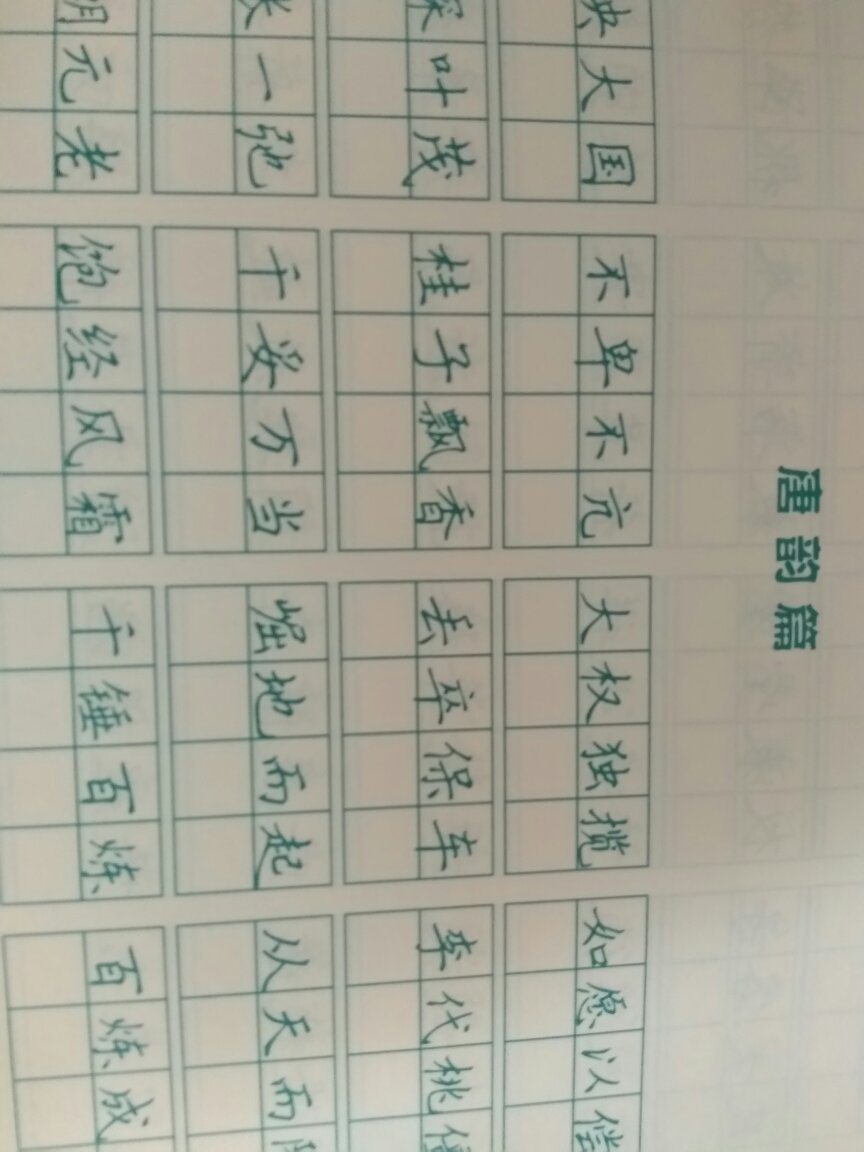 唐韵篇
央大国 不卑不亢 大权独揽 如愿以偿
深叶茂 桂子飘香 丢卒保车 李代桃僵
张一弛 千妥万当 崛地而起 从天而降
元老 饱经风霜 千锤百炼 百炼成